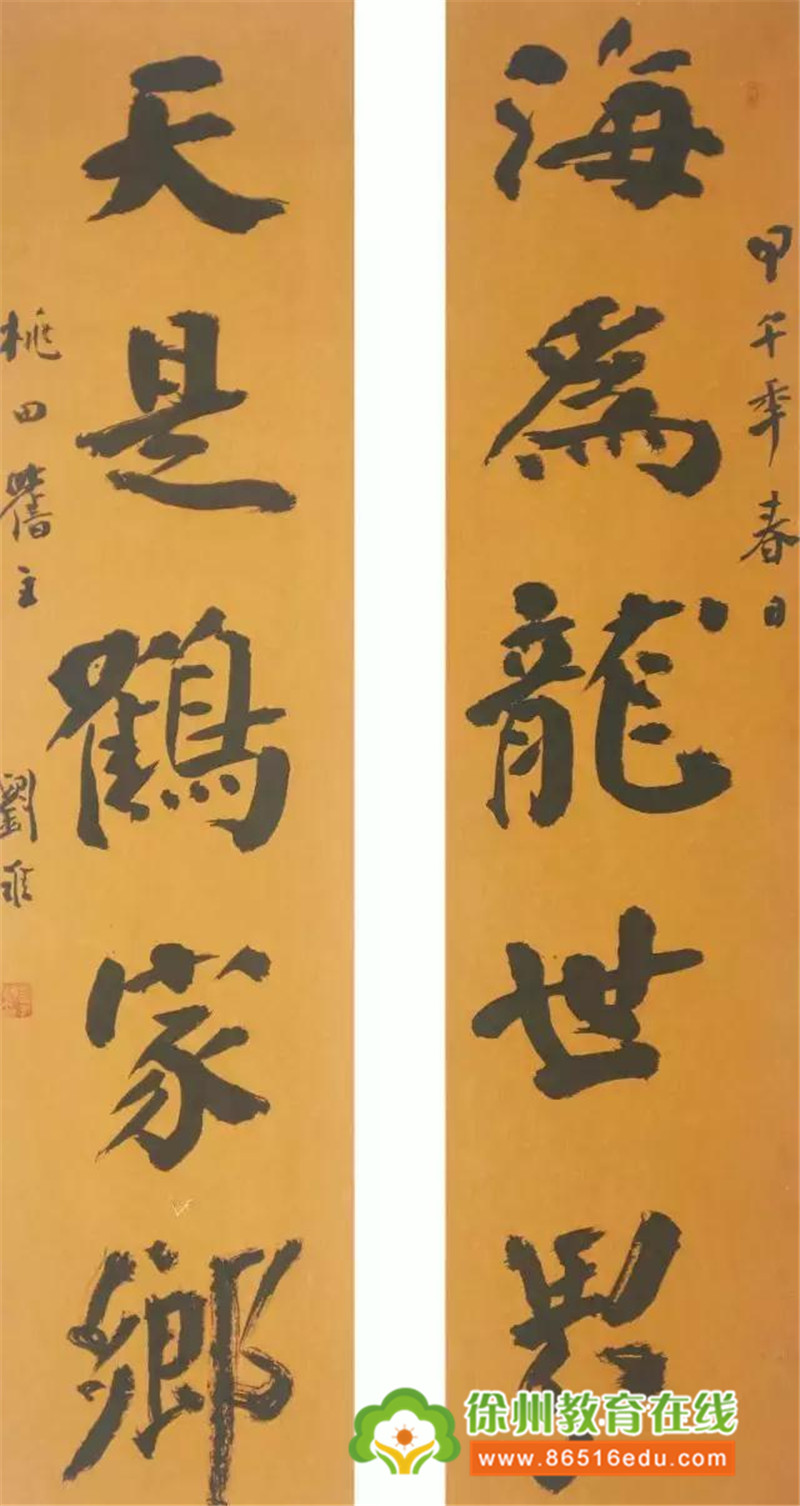 甲午年春日
海爲龍世界
天是鶴家鄉
桃田舊主 劉
徐州教育在线
www.86516edu.com